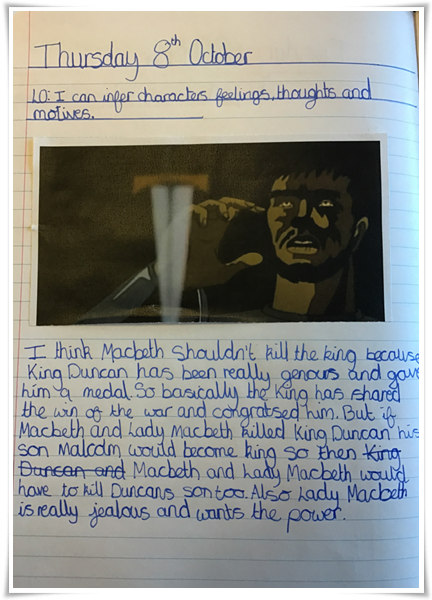 Thursday 8th October
LO: I can infer characters feelings, thoughts and
motives.
I think Macbeth shouldn't kill the king because
King Duncan has been really genours and gave
him a medal. So basically the King has shared
the win of the war and congratsed him. But if
Macbeth and Lady Macbeth killed King Duncan his
son Malcolm would become king so then King
Duncan and Macbeth and Lady Macbeth would
have to kill Duncans son too. Also Lady Macbeth
is really jealous and wants the power.